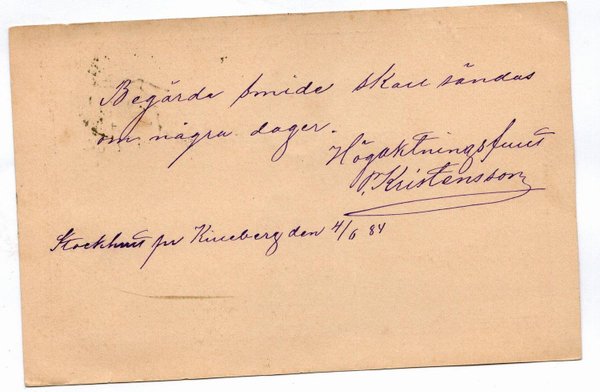 Begärda smide skall sändas
om några dager.
Högaktningsfullt
P. Kristensson
pr Kileberg den 4/6 84